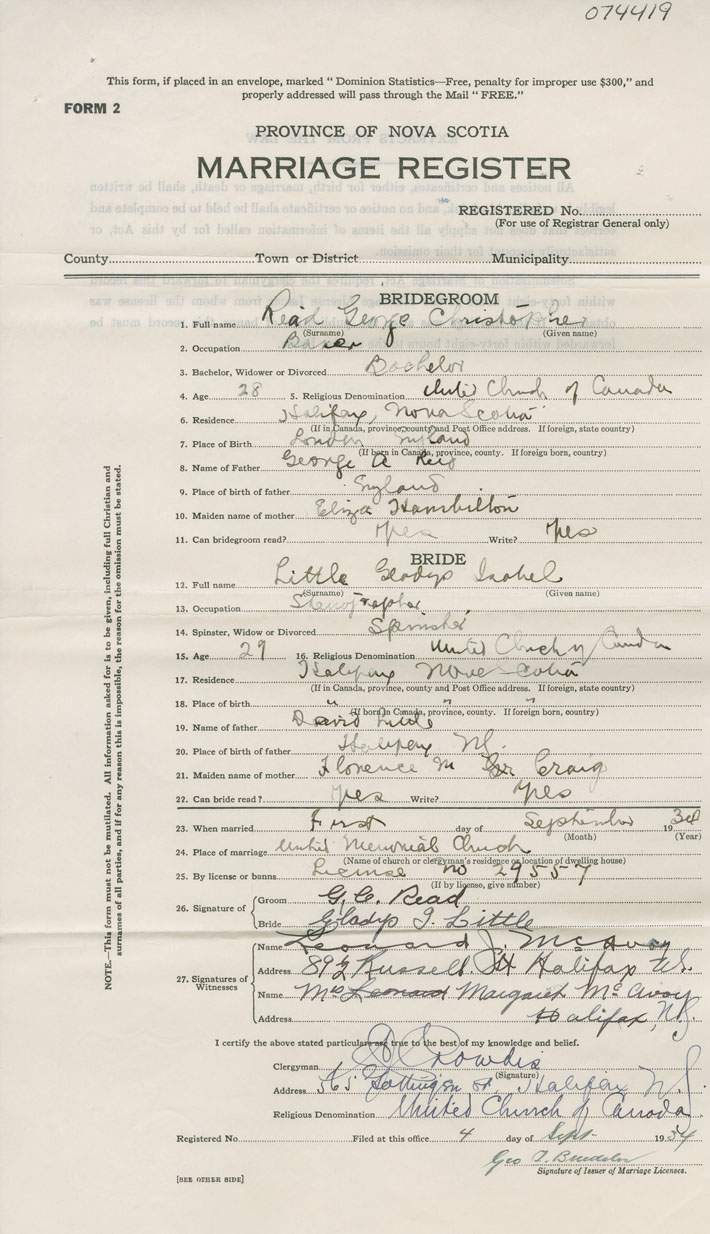 074419
This form, if placed in an envelope, marked " Dominion Statistics—Free, penalty for improper use $300," and
properly addressed will pass through the Mail " FREE."
FORM 2
PROVINCE OF NOVA SCOTIA
MARRIAGE REGISTER
REGISTERED No.
(For use of Registrar General only)
County Town or District Municipality
BRIDEGROOM
1. Full name Read George Christopher
(Surname) (Given name)
2. Occupation Baker
3. Bachelor, Widower or Divorced Bachelor
4. Age 28 5. Religious Denomination United Church of Canada
6. Residence Halifax, Nova Scotia
(If in Canada, province, county and Post Office address. If foreign, state country)
7. Place of Birth London England
(If born in Canada, province, county. If foreign born, country)
8. Name of Father George A Reid
9. Place of birth of father England
10. Maiden name of mother Eliza Hambilton
11. Can bridegroom read? Yes Write? Yes
BRIDE
12. Full name Little Gladys Isobel
(Surname) (Given name)
13. Occupation Stenographer
14. Spinster, Widow or Divorced Spinster
15. Age 29 16. Religious Denomination United Church of Canada
17. Residence Halifax Nova Scotia
(If in Canada, province, county and Post Office address. If foreign, state country)
18. Place of birth " " "
(If born in Canada, province, county. If foreign born, country)
19. Name of father David Little
20. Place of birth of father Halifax NS.
21. Maiden name of mother Florence M Craig
22. Can bride read? Yes Write? Yes
23. When married First day of September 1934
(Month) (Year)
24. Place of marriage United Memorial Church
(Name of church or clergyman's residence or location of dwelling house)
25. By license or banns License no 29557
(If by license, give number)
26. Signature of Groom G. C. Read
Bride Gladys I. Little
27. Signatures of Witnesses
Name Leonard J. McAvoy
Address 89½ Russell. St Halifax N.S.
Name Mrs Leonard Margaret McAvoy
Address Halifax, N.S.
I certify the above stated particulars are true to the best of my knowledge and belief.
Clergyman
(Signature)
Address 565 Gottingen St, Halifax N.S.
Religious Denomination United Church of Canada
Registered No. Filed at this office 4 day of Sept. 1934
Geo A.
Signature of Issuer of Marriage Licenses.
[SEE OTHER SIDE]
NOTE.—This form must not be mutilated. All information asked for is to be given, including full Christian and
surnames of all parties, and if for any reason this is impossible, the reason for the omission must be stated.